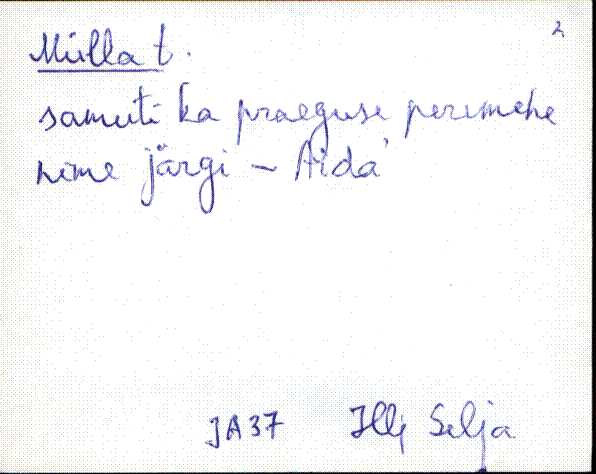 2
Mülla t.
samuti ka praeguse peremehe
nime järgi – Aida'
JA37 Illi Selja